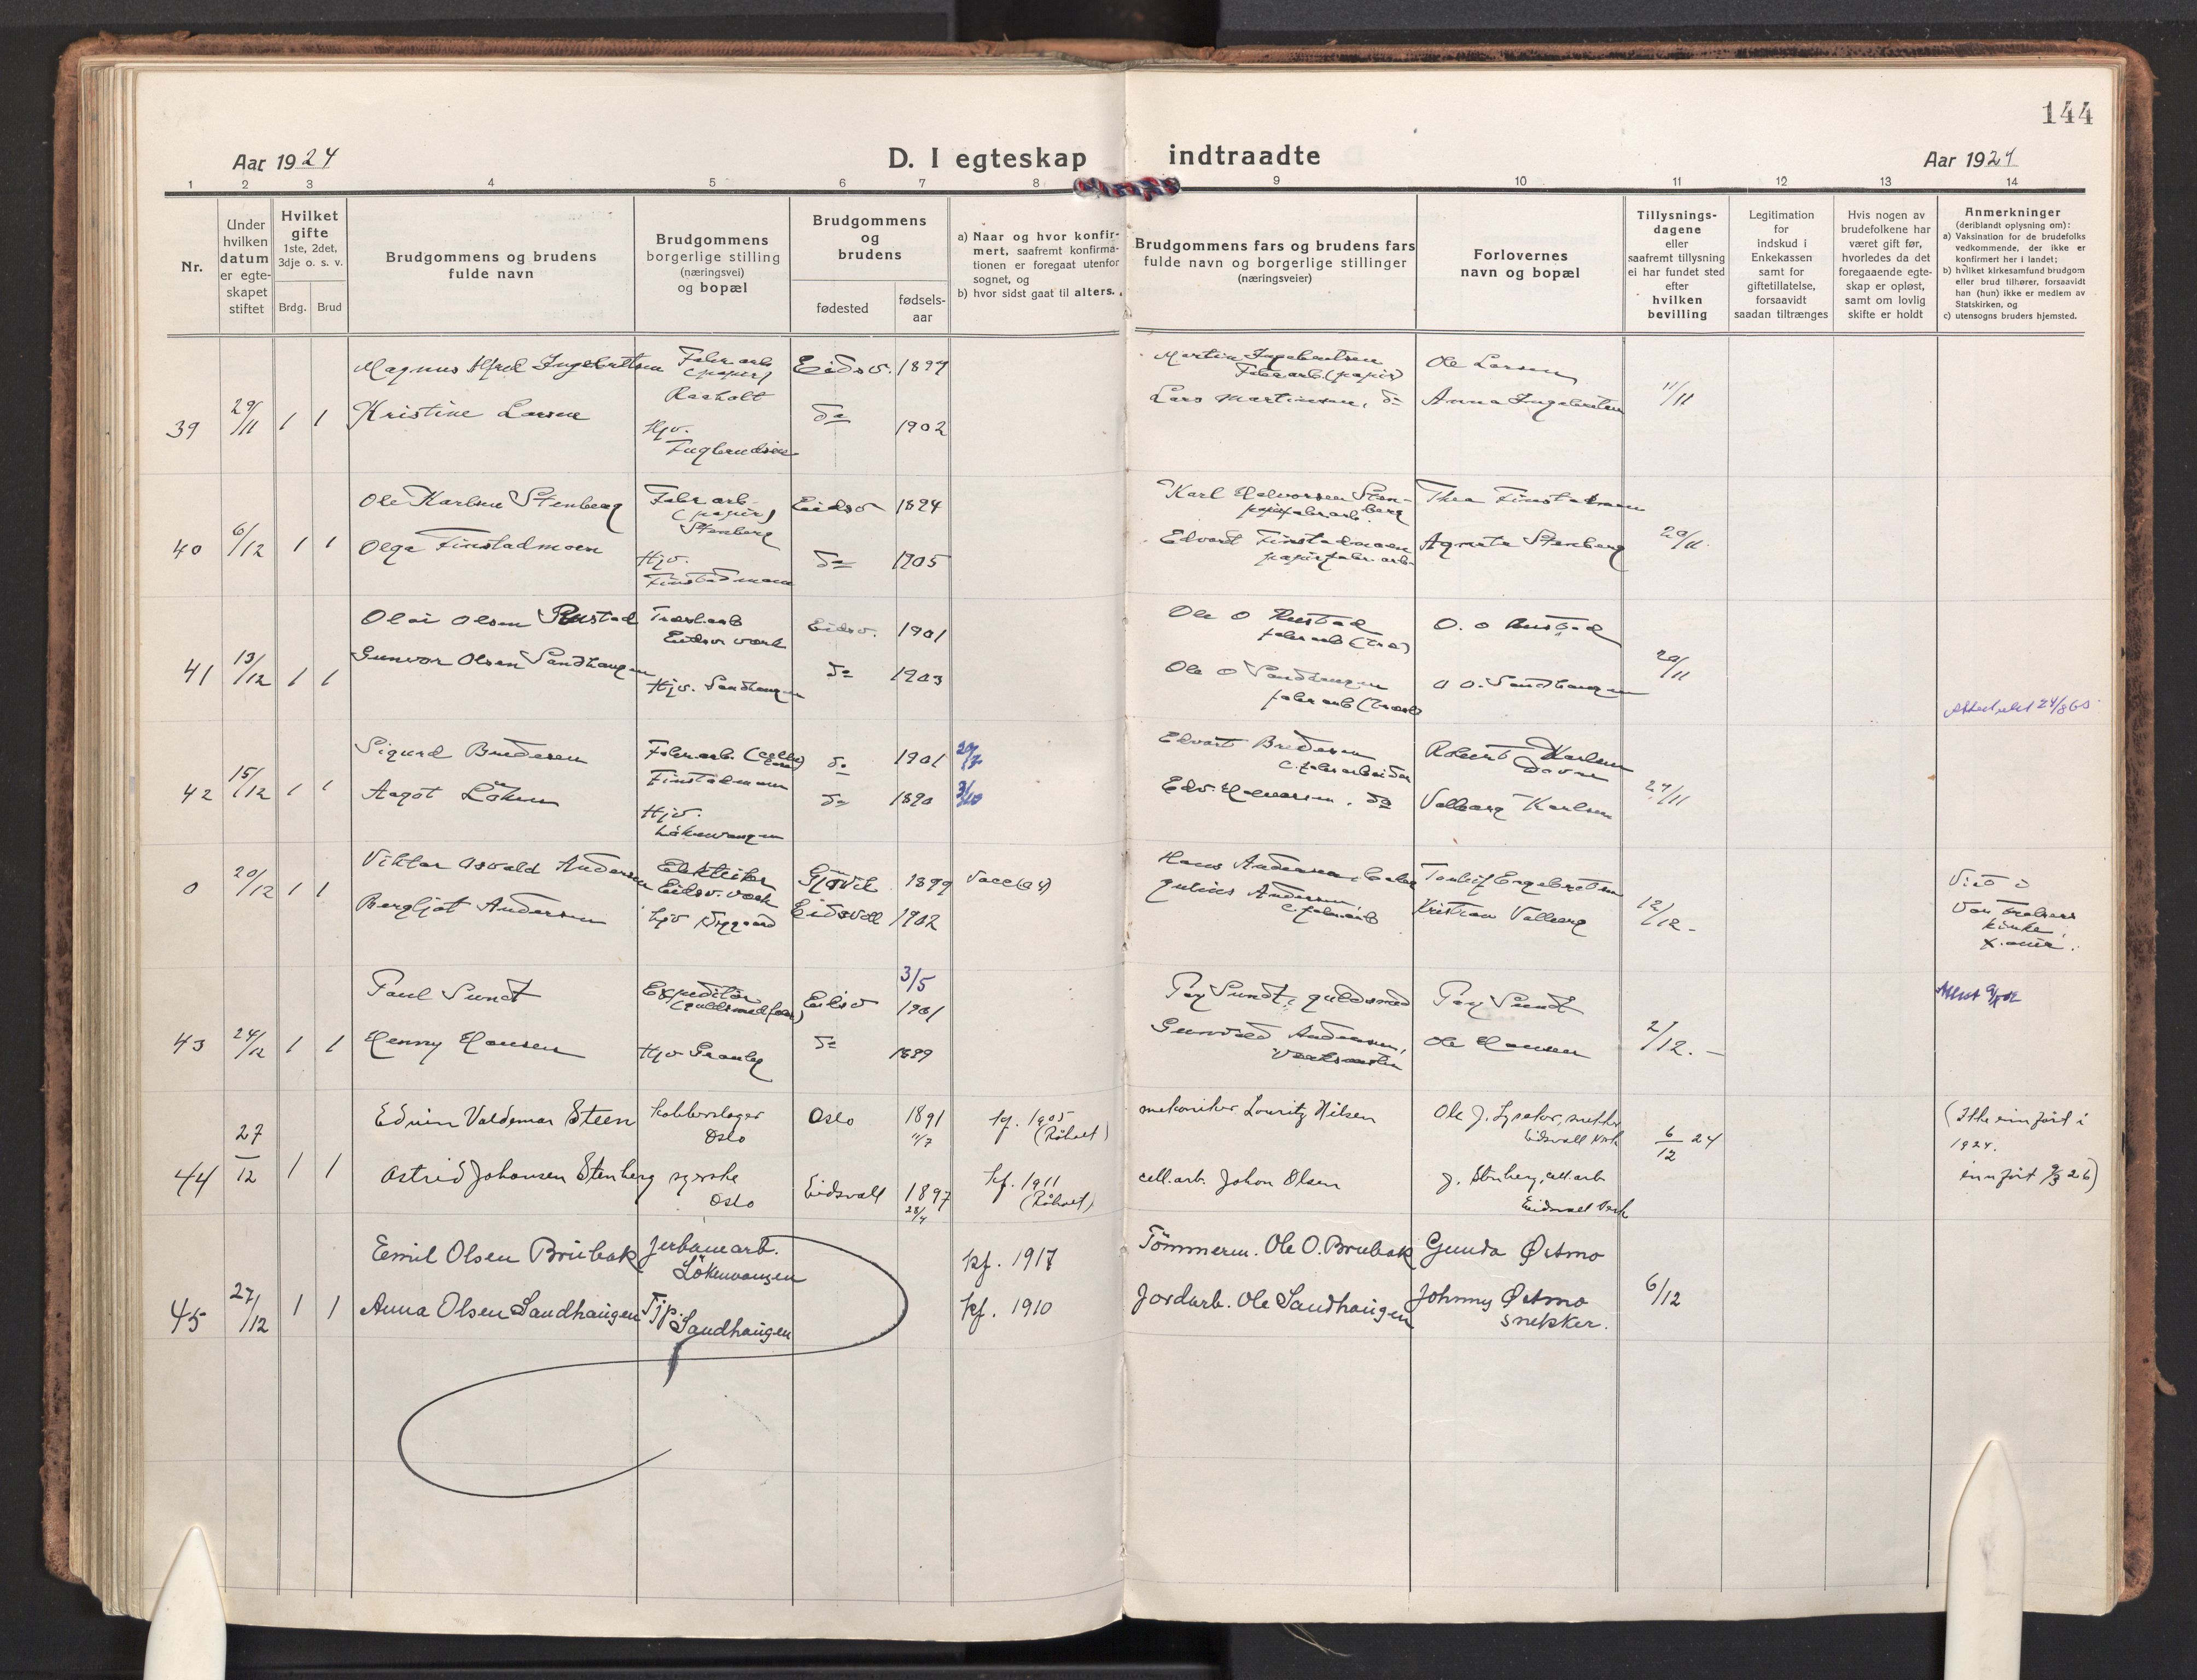 144
Aar 1924
D. I egteskap indtraadte
Aar 1924
1 2 3 4 5 6 7 8 9 10 11 12 13 14
Nr.
Under
hvilken
datum
er egte-
skapet
stiftet
Hvilket
gifte
1ste, 2det,
3dje o. s. v.
Brdg. Brud
Brudgommens og brudens
fulde navn
Brudgommens
borgerlige stilling
(næringsvei)
og bopæl
Brudgommens
og
brudens
fødested
fødsels-
aar
a) Naar og hvor konfir-
mert, saafremt konfirma-
tionen er foregaat utenfor
sognet, og
b) hvor sidst gaat til alters.
Brudgommens fars og brudens fars
fulde navn og borgerlige stillinger
(næringsveier)
Forlovernes
navn og bopæl
Tillysnings-
dagene
eller
saafremt tillysning
ei har fundet sted
efter
hvilken
bevilling
Legitimation
for
indskud i
Enkekassen
samt for
giftetillatelse,
forsaavidt
saadan tiltrænges
Hvis nogen av
brudefolkene har
været gift før,
hvorledes da det
foregaaende egte-
skap er opløst,
samt om lovlig
skifte er holdt
Anmerkninger
(deriblandt oplysning om):
a) Vaksination for de brudefolks
vedkommende, der ikke er
konfirmert her i landet;
b) hvilket kirkesamfund brudgom
eller brud tilhører, forsaavidt
han (hun) ikke er medlem av
Statskirken, og
c) utensogns bruders hjemsted.
39 29/11 1 1
Magnus Alfred Ingebretsen
Fabr arb
(papir)
Raaholt
Eidsv. 1897
Martin Ingebretsen
Fabr arb (papir)
Ole Larsen
11/11
Kristine Larsen
Hjv.
do 1902
Lars Martinsen, do
Anna Ingebretsen
40 6/12 1 1
Ole Karlsen Stenberg
Fabr arb
(papir)
Stenberg
Eidsv 1824
Karl Halvorsen Sten-
berg
papirfabr. arb.
Thea Finstadmoen
20/11
Olga Finstadmoen
Hjv.
Finstadmoen
do 1905
Edvart Finstadmoen
papirfabr. arb.
Agnete Stenberg
41 13/12 1 1
Olai Olsen Rustad
Eidsv verk
Eidsv. 1901
Ole O Rustad
fabr arb (tre)
O. O Rustad
20/11
Gunvor Olsen Sandhaugen
Hjv. Sandhaugen
do 1903
Ole O Sandhaugen
O O. Sandhaugen
42 15/12 1 1
Sigurd Bredesen
Fabr. arb.
Finstadmoen
do 1901
Edvart Bredesen
c. fabr arbeider
Robert Karlsen
27/11
Aagot Löken
Hjv.
Lökenvangen
do 1890
Edv. Halvorsen, do
Valborg Karlsen
0 20/12 1 1
Viktor Osvald Andersen
Elektriker
Eidsv. verk
Gjövik 1899
Hans Andersen
12/12 -
Viet i
Vor Frelsers
kirke,
Bergljot Andersen
hjv Nygaard
Eidsvoll 1902
Julius Andersen,
c. fabr arb
Kristian Valberg
43 24/12 1 1
Paul Sundt
Expeditør
Eidsv
3/5
1901
Pay Sundt, guldsmed
Pay Sundt
2/12. -
Henny Hansen
Hjv Granly
do 1899
Gunvald Andersen,
Ole Hansen
44 27/12 1 1
Edvin Valdemar Steen
kobberslager
Oslo
Oslo 1891
11/7
kf. 1905
(Råholt)
mekaniker Lauritz Nilsen
Eidsvoll Verk
6/12 24
(Ikke innført i
1924.
innført 9/3 26)
Astrid Johansen Stenberg
syerske
Oslo
Eidsvoll 1897
28/4
kf. 1911
(Råholt)
cell. arb. Johan Olsen
J. Stenberg, cell. arb
Eidsvoll Verk
45 27/12 1 1
Emil Olsen Brubak
Jerbanearb.
Lökenvangen
kf. 1917
Tömmerm. Ole O. Brubak
Gunda Østmo
6/12
Anna Olsen Sandhaugen
Tjp.
Sandhaugen
kf. 1910
Jordarb. Ole Sandhaugen
Johnny Østmo
snekker.